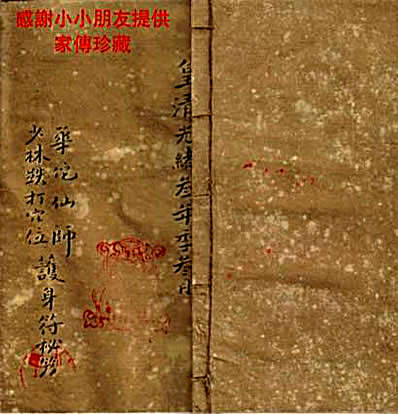 感謝小小朋友提供
家傳珍藏
皇清光緒叁年季叁月
華佗仙師
少林跌打穴位
護身符秘